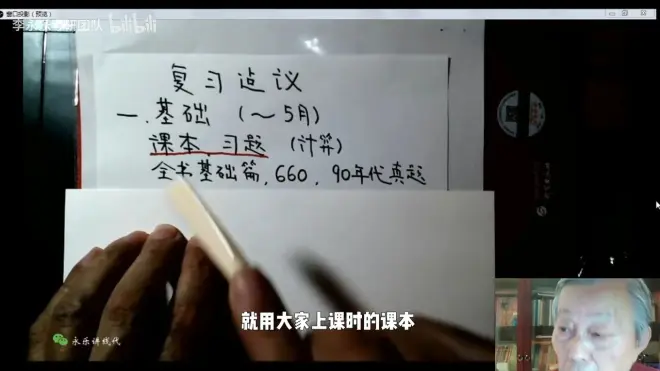 窗口投影(预览)
bilibili
复习迠议
一.基础 (～5月)
课本 习题 (计算)
全书基础篇, 660, 90年代真题
就用大家上课时的课本
永乐讲线代